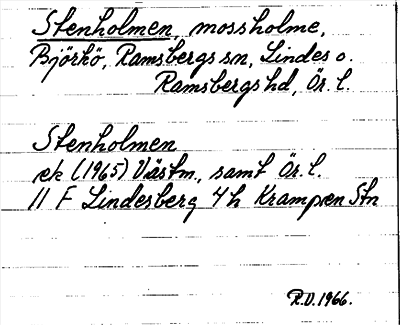 Stenholmen, mossholme,
Björkö, Ramsbergs sn, Lindes o.
Ramsbergs hd, Ör. l.
Stenholmen
ek (1965) Västm., samt Ör. l.
11 F Lindesberg 4h Krampen Stn
R.D. 1966.